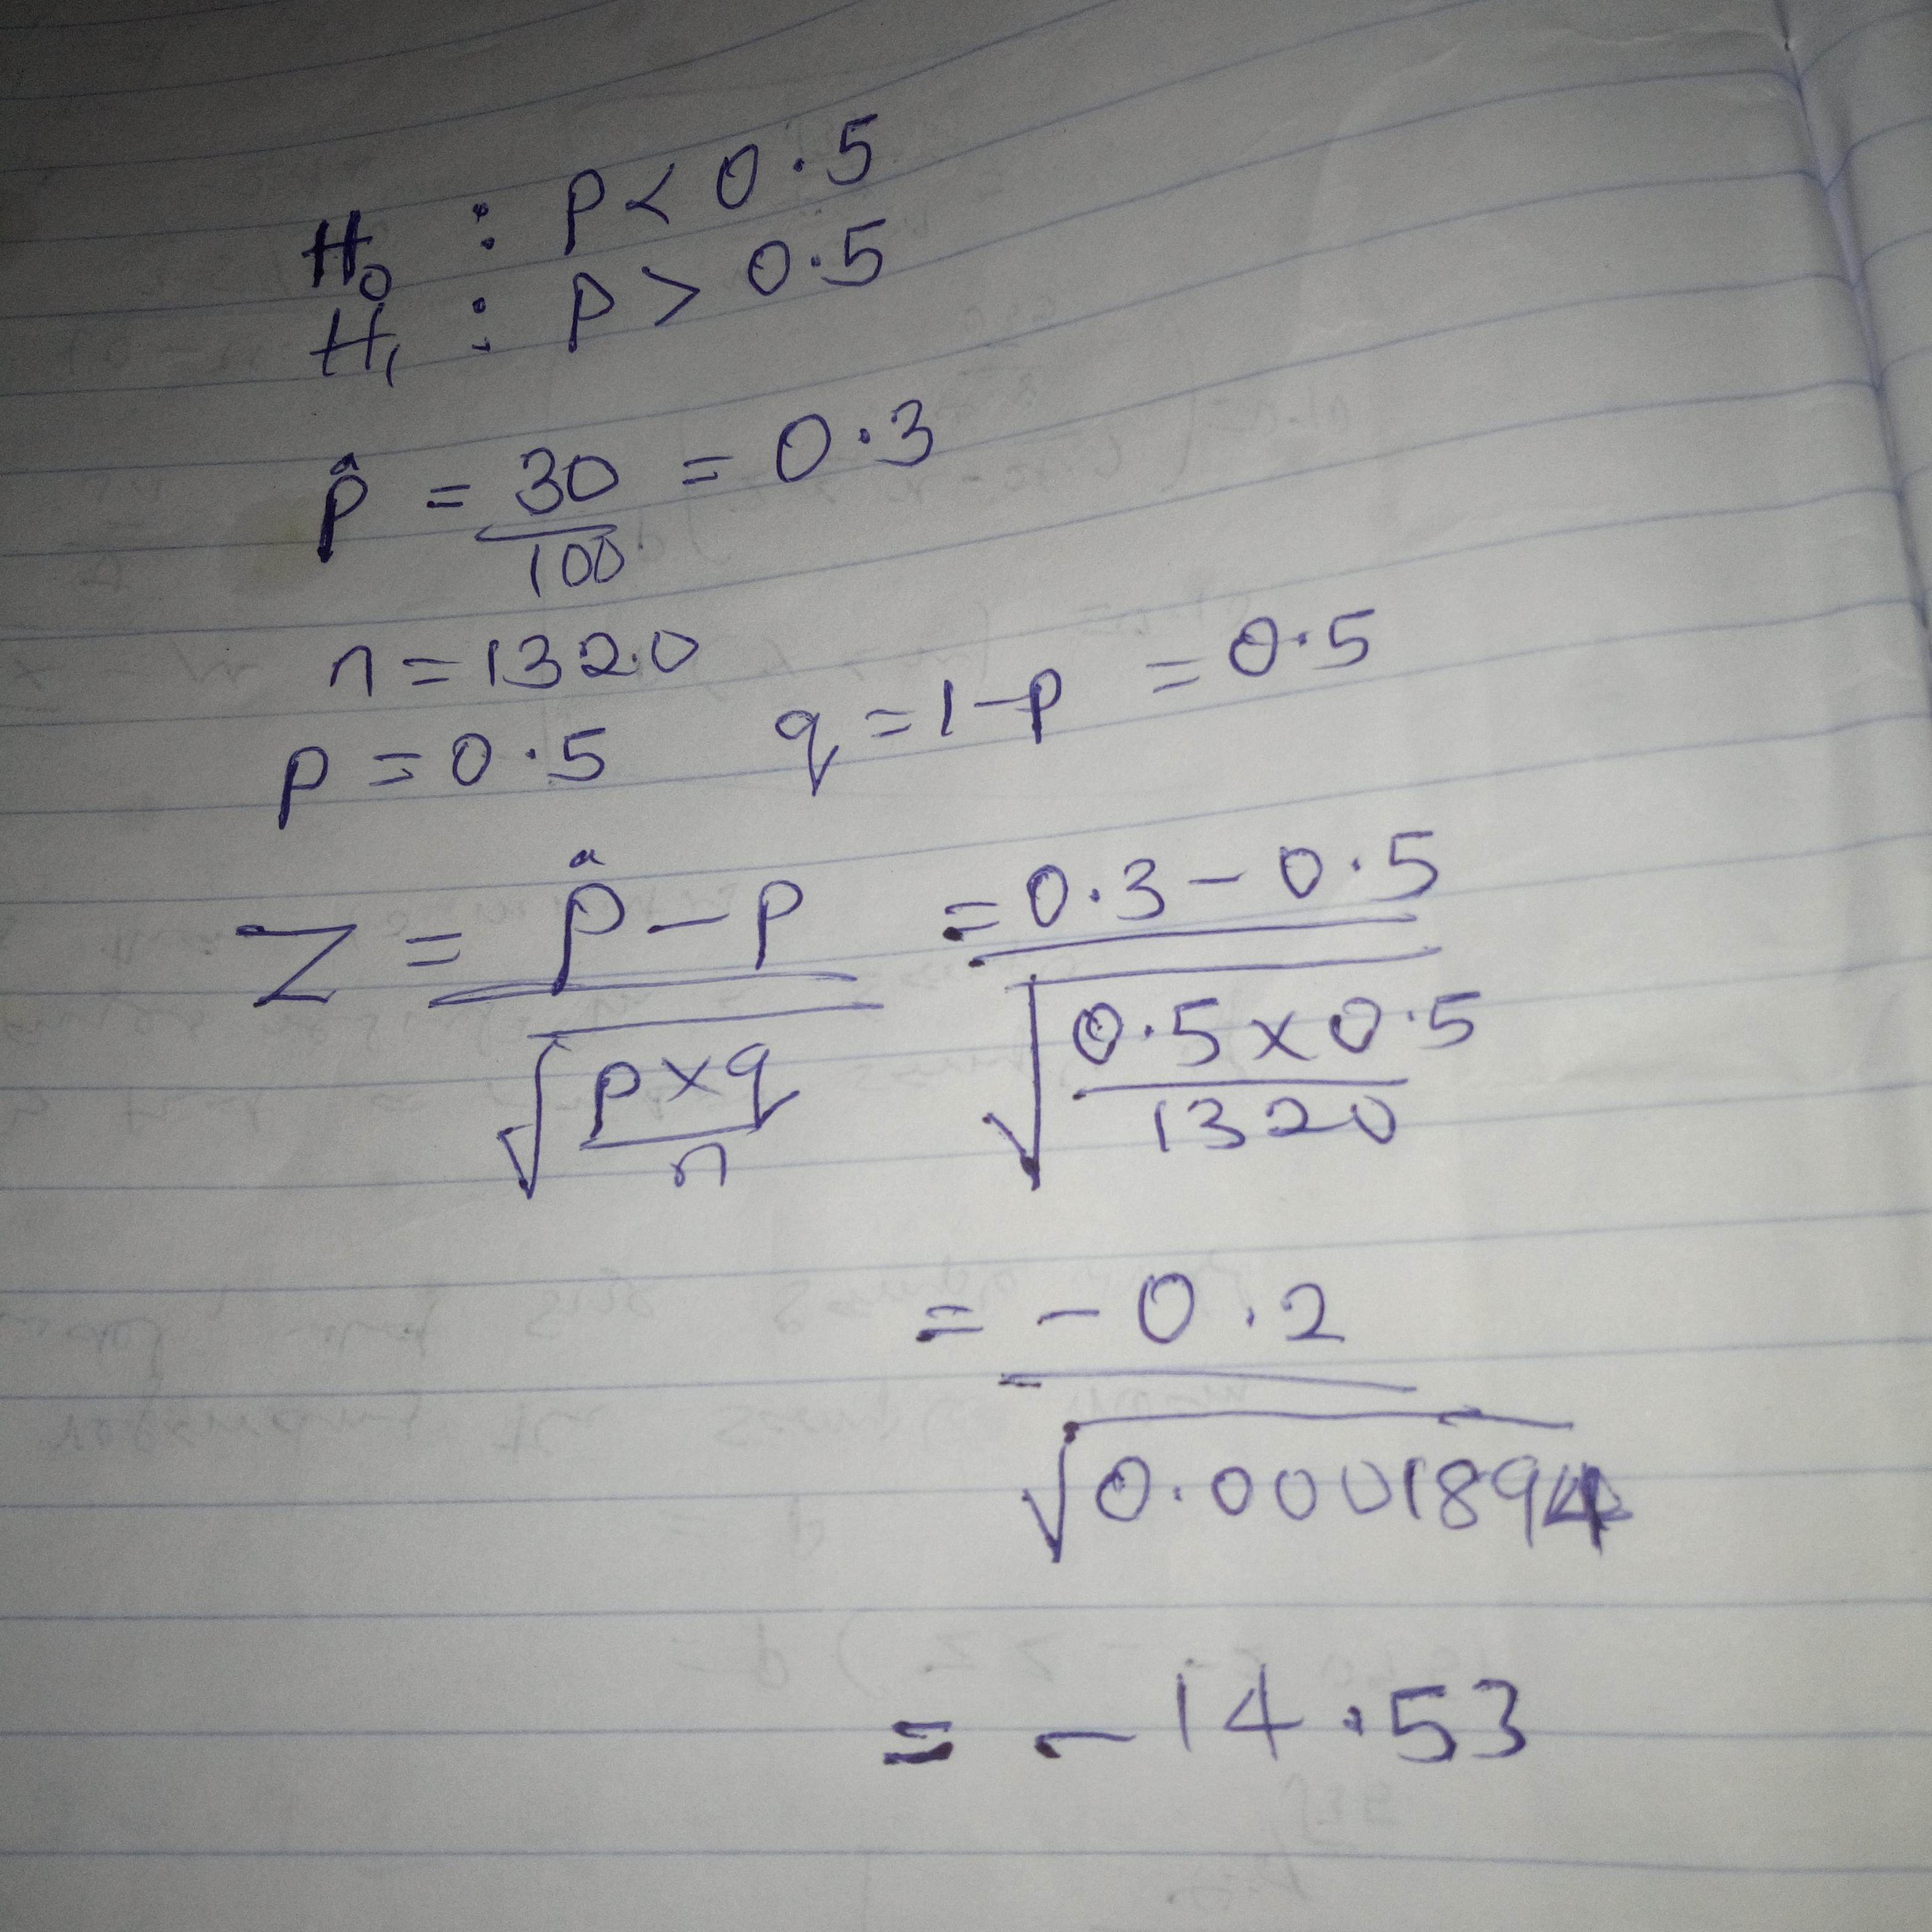 H₀ : P < 0.5
H₁ : P > 0.5
p̂ = 30/100 = 0.3
n = 1320
p = 0.5 q = 1-p = 0.5
Z = p̂ - p / √(p×q/n) = 0.3 - 0.5 / √(0.5×0.5/1320)
= -0.2 / √0.0001894
= -14.53